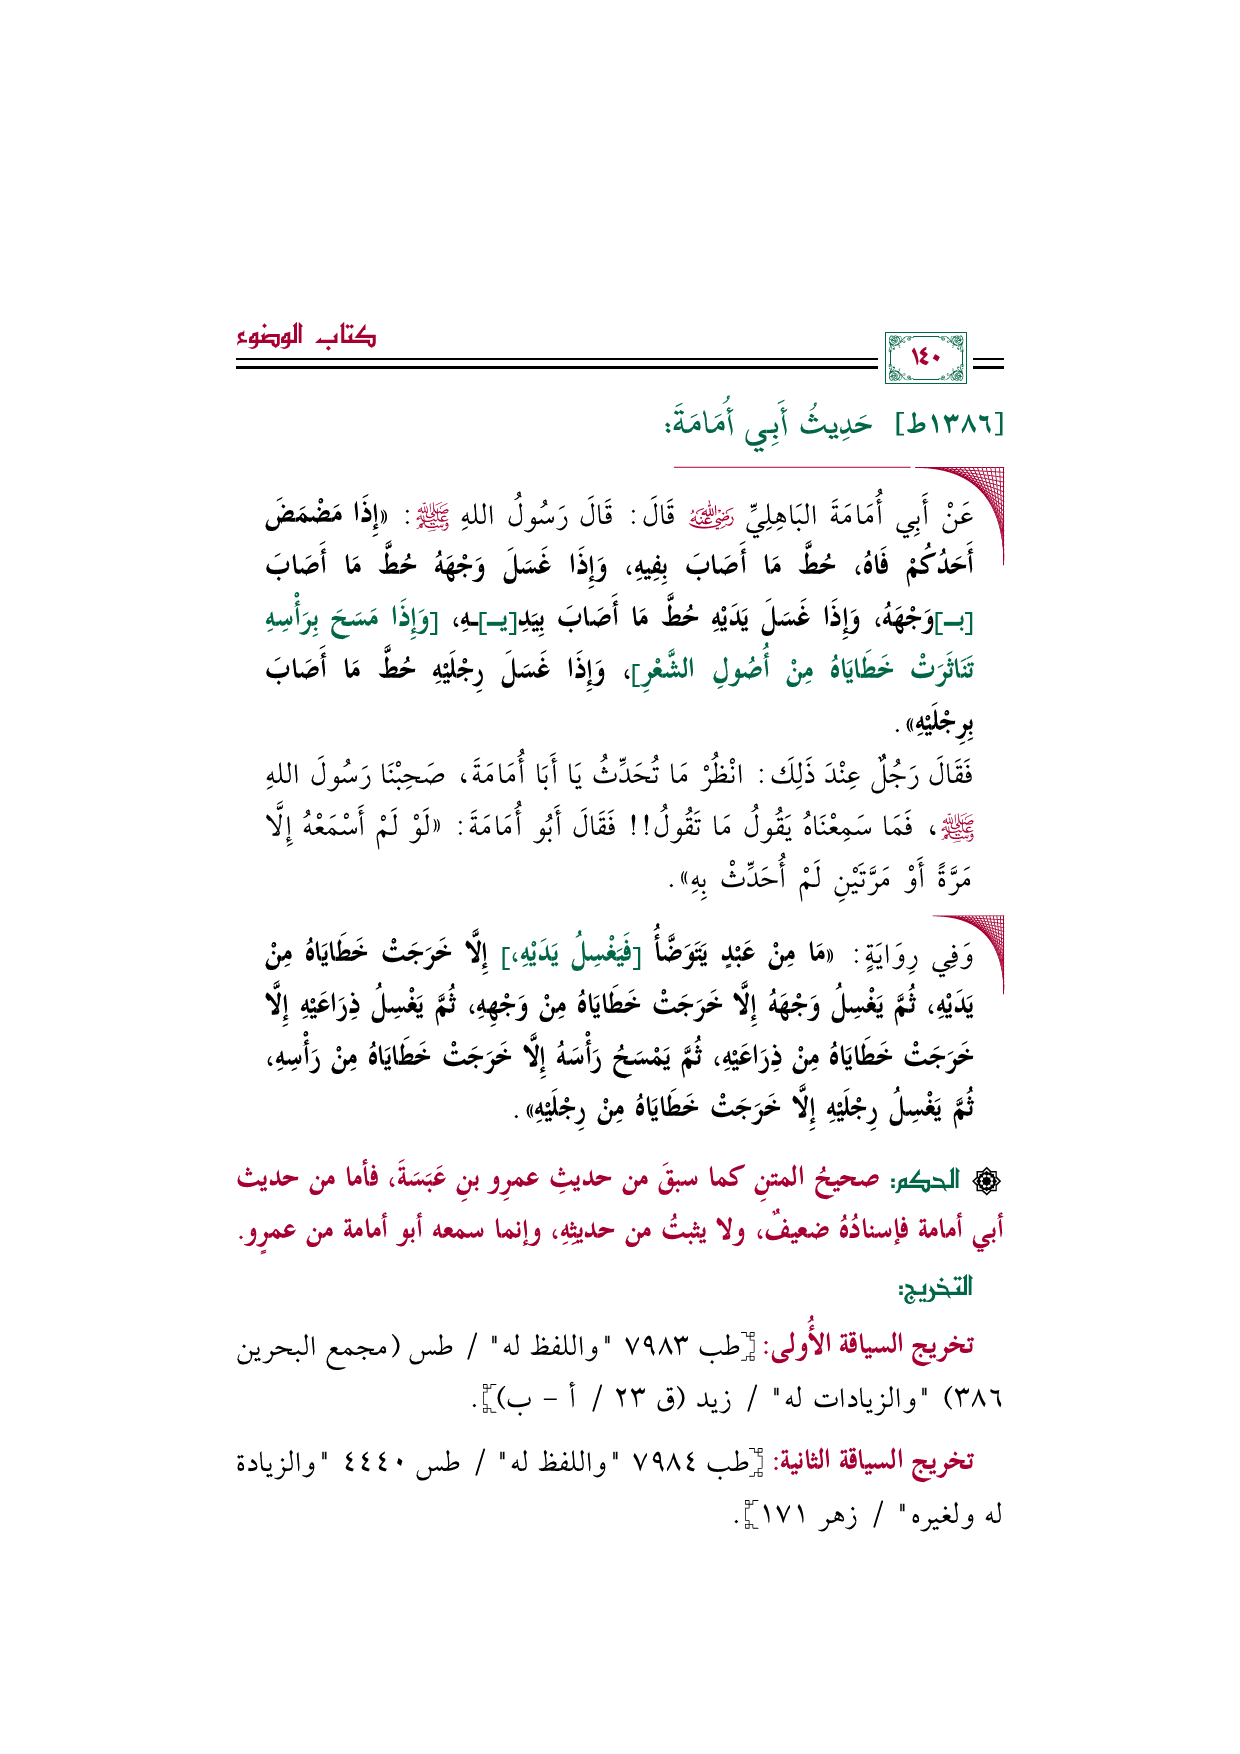 كتاب الوضوء
١٤٠
[١٣٨٦ط] حَدِيثُ أَبِي أُمَامَةَ:
عَنْ أَبِي أُمَامَةَ البَاهِلِيِّ رضي الله عنه قَالَ: قَالَ رَسُولُ اللهِ ﷺ: «إِذَا مَضْمَضَ
أَحَدُكُمْ فَاهُ، حُطَّ مَا أَصَابَ بِفِيهِ، وَإِذَا غَسَلَ وَجْهَهُ حُطَّ مَا أَصَابَ
[بـ]وَجْهَهُ، وَإِذَا غَسَلَ يَدَيْهِ حُطَّ مَا أَصَابَ بِيَدِ[يـ]ـهِ، [وَإِذَا مَسَحَ بِرَأْسِهِ
تَنَاثَرَتْ خَطَايَاهُ مِنْ أُصُولِ الشَّعْرِ]، وَإِذَا غَسَلَ رِجْلَيْهِ حُطَّ مَا أَصَابَ
بِرِجْلَيْهِ».
فَقَالَ رَجُلٌ عِنْدَ ذَلِكَ: انْظُرْ مَا تُحَدِّثُ يَا أَبَا أُمَامَةَ، صَحِبْنَا رَسُولَ اللهِ
ﷺ، فَمَا سَمِعْنَاهُ يَقُولُ مَا تَقُولُ!! فَقَالَ أَبُو أُمَامَةَ: «لَوْ لَمْ أَسْمَعْهُ إِلَّا
مَرَّةً أَوْ مَرَّتَيْنِ لَمْ أُحَدِّثْ بِهِ».
وَفِي رِوَايَةٍ: «مَا مِنْ عَبْدٍ يَتَوَضَّأُ [فَيَغْسِلُ يَدَيْهِ،] إِلَّا خَرَجَتْ خَطَايَاهُ مِنْ
يَدَيْهِ، ثُمَّ يَغْسِلُ وَجْهَهُ إِلَّا خَرَجَتْ خَطَايَاهُ مِنْ وَجْهِهِ، ثُمَّ يَغْسِلُ ذِرَاعَيْهِ إِلَّا
خَرَجَتْ خَطَايَاهُ مِنْ ذِرَاعَيْهِ، ثُمَّ يَمْسَحُ رَأْسَهُ إِلَّا خَرَجَتْ خَطَايَاهُ مِنْ رَأْسِهِ،
ثُمَّ يَغْسِلُ رِجْلَيْهِ إِلَّا خَرَجَتْ خَطَايَاهُ مِنْ رِجْلَيْهِ».
الحكم: صحيحُ المتنِ كما سبقَ من حديثِ عمرِو بنِ عَبَسَةَ، فأما من حديث
أبي أمامة فإسنادُهُ ضعيفٌ، ولا يثبتُ من حديثِهِ، وإنما سمعه أبو أمامة من عمرٍو.
التخريج:
تخريج السياقة الأُولى: [طب ٧٩٨٣ "واللفظ له" / طس (مجمع البحرين
٣٨٦) "والزيادات له" / زيد (ق ٢٣ / أ - ب)].
تخريج السياقة الثانية: [طب ٧٩٨٤ "واللفظ له" / طس ٤٤٤٠ "والزيادة
له ولغيره" / زهر ١٧١].